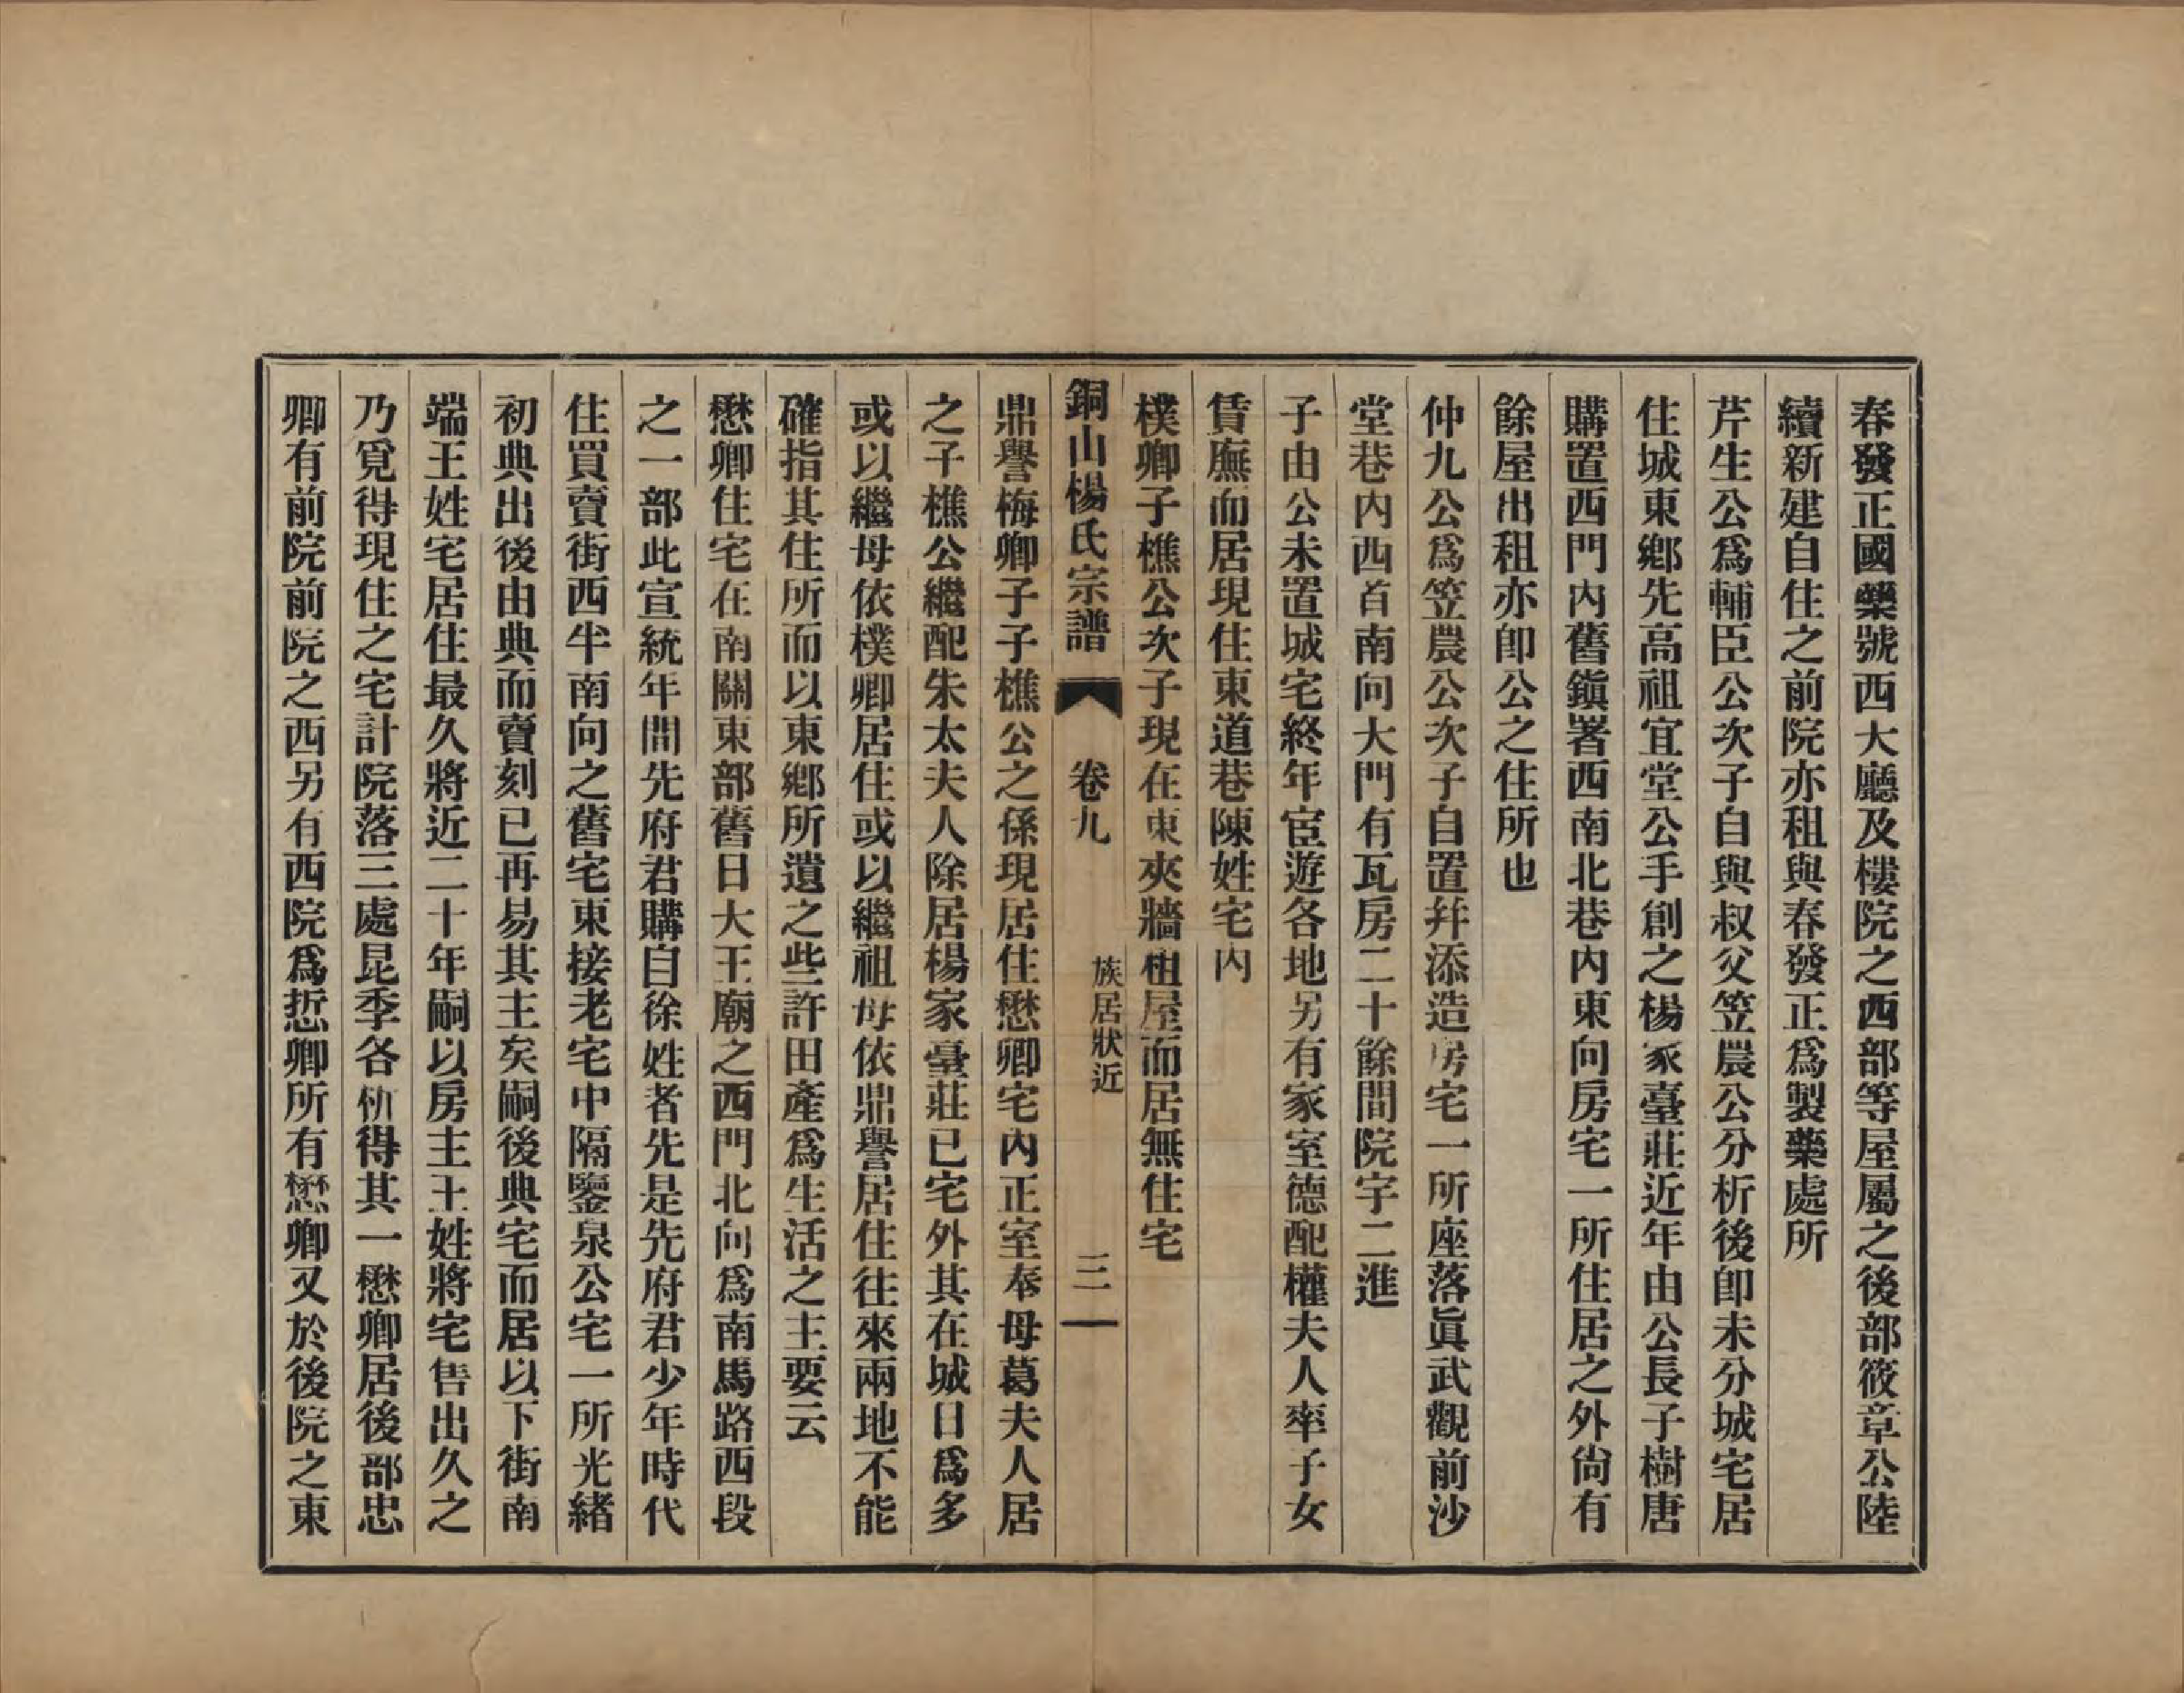 春發正國藥號西大廳及樓院之西部等屋屬之後部筱章公陸
續新建自住之前院亦租與春發正爲製藥處所
芹生公爲輔臣公次子自與叔父笠農公分析後卽未分城宅居
住城東鄉先高祖宜堂公手創之楊家臺莊近年由公長子樹唐
購置西門內舊鎭署西南北巷內東向房宅一所住居之外尙有
餘屋出租亦卽公之住所也
仲九公爲笠農公次子自置幷添造房宅一所座落眞武觀前沙
堂巷內西首南向大門有瓦房二十餘間院宇二進
子由公未置城宅終年宦遊各地另有家室德配權夫人率子女
賃廡而居現住東道巷陳姓宅內
樸卿子樵公次子現在東夾牆租屋而居無住宅
銅山楊氏宗譜　卷九　族居狀近　三
鼎譽梅卿子子樵公之孫現居住懋卿宅內正室奉母葛夫人居
之子樵公繼配朱太夫人除居楊家臺莊已宅外其在城日爲多
或以繼母依樸卿居住或以繼祖母依鼎譽居住往來兩地不能
確指其住所而以東鄉所遺之些許田產爲生活之主要云
懋卿住宅在南關東部舊日大王廟之西門北向爲南馬路西段
之一部此宣統年間先府君購自徐姓者先是先府君少年時代
住買賣街西半南向之舊宅東接老宅中隔鑒泉公宅一所光緒
初典出後由典而賣刻已再易其主矣嗣後典宅而居以下街南
端王姓宅居住最久將近二十年嗣以房主王姓將宅售出久之
乃覓得現住之宅計院落三處昆季各析得其一懋卿居後部忠
卿有前院前院之西另有西院爲悊卿所有懋卿又於後院之東